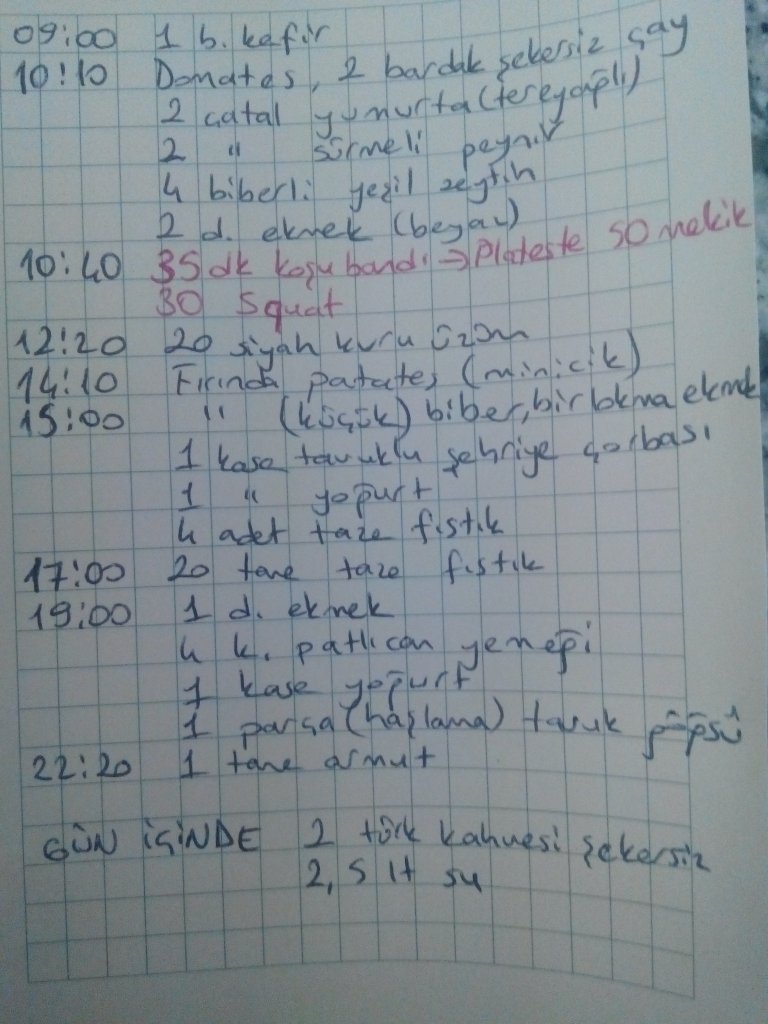 09:00 1 b. kefir
10:10 Domates, 2 bardak şekersiz çay
2 çatal yumurta (tereyağlı)
2 " sürmeli peynir
4 biberli yeşil zeytin
2 d. ekmek (beyaz)
10:40 35 dk koşu bandı → Plateste 50 mekik
30 Squat
12:20 20 siyah kuru üzüm
14:10 Fırında patates (minicik)
15:00 " (küçük) biber, bir lokma ekmek
1 kase tavuklu şehriye çorbası
1 " yoğurt
4 adet taze fıstık
17:00 20 tane taze fıstık
19:00 1 d. ekmek
4 k. patlıcan yemeği
1 kase yoğurt
1 parça (haşlama) tavuk göğsü
22:20 1 tane armut
GÜN İÇİNDE 2 türk kahvesi şekersiz
2,5 lt su